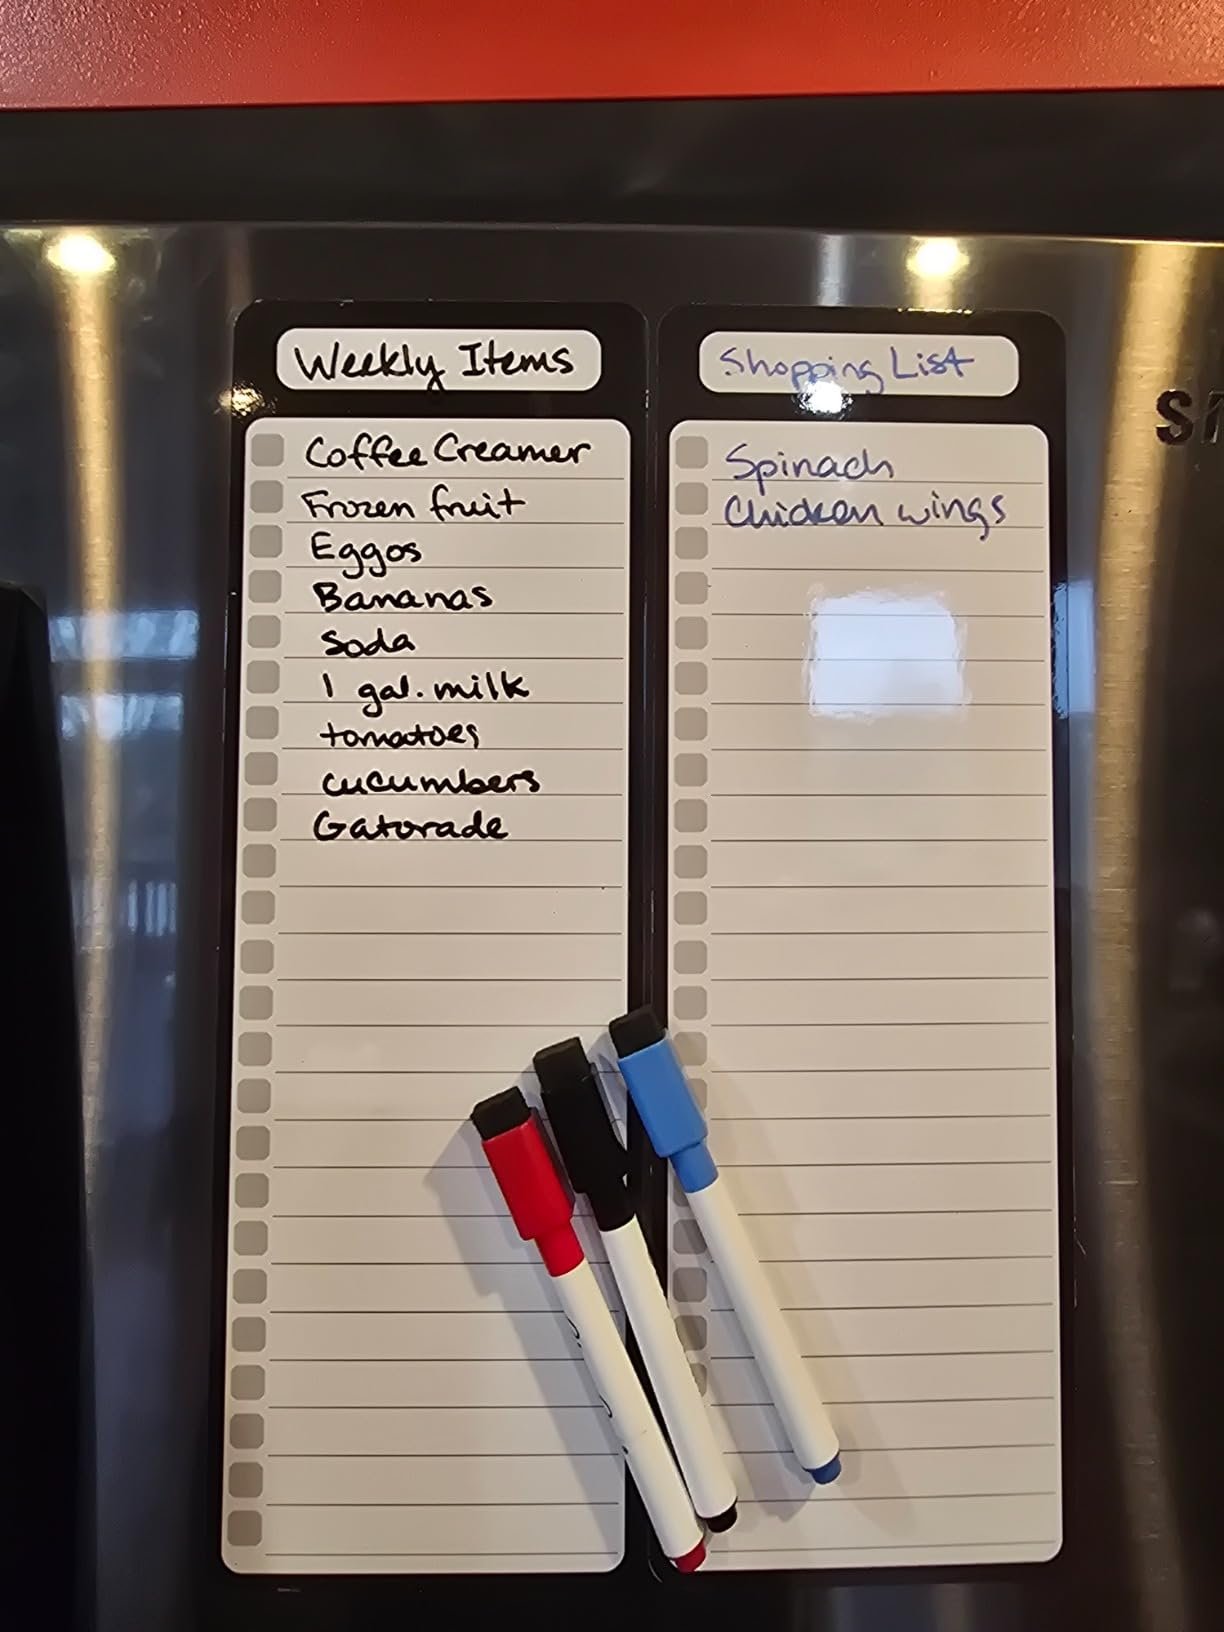 Weekly Items
Coffee Creamer
Frozen fruit
Eggos
Bananas
Soda
1 gal. milk
tomatoes
cucumbers
Gatorade
Shopping List
Spinach
Chicken wings